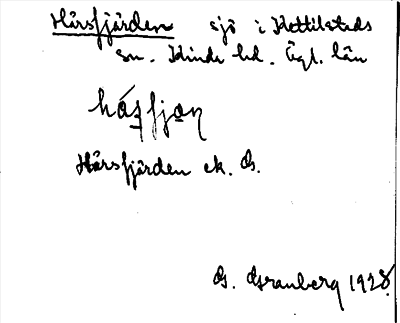 Hårsfjärden sjö i Kettilstads
sn. Kinda hd. Ögl. län
Hårsfjärden ek. G.
G. Granberg 1928